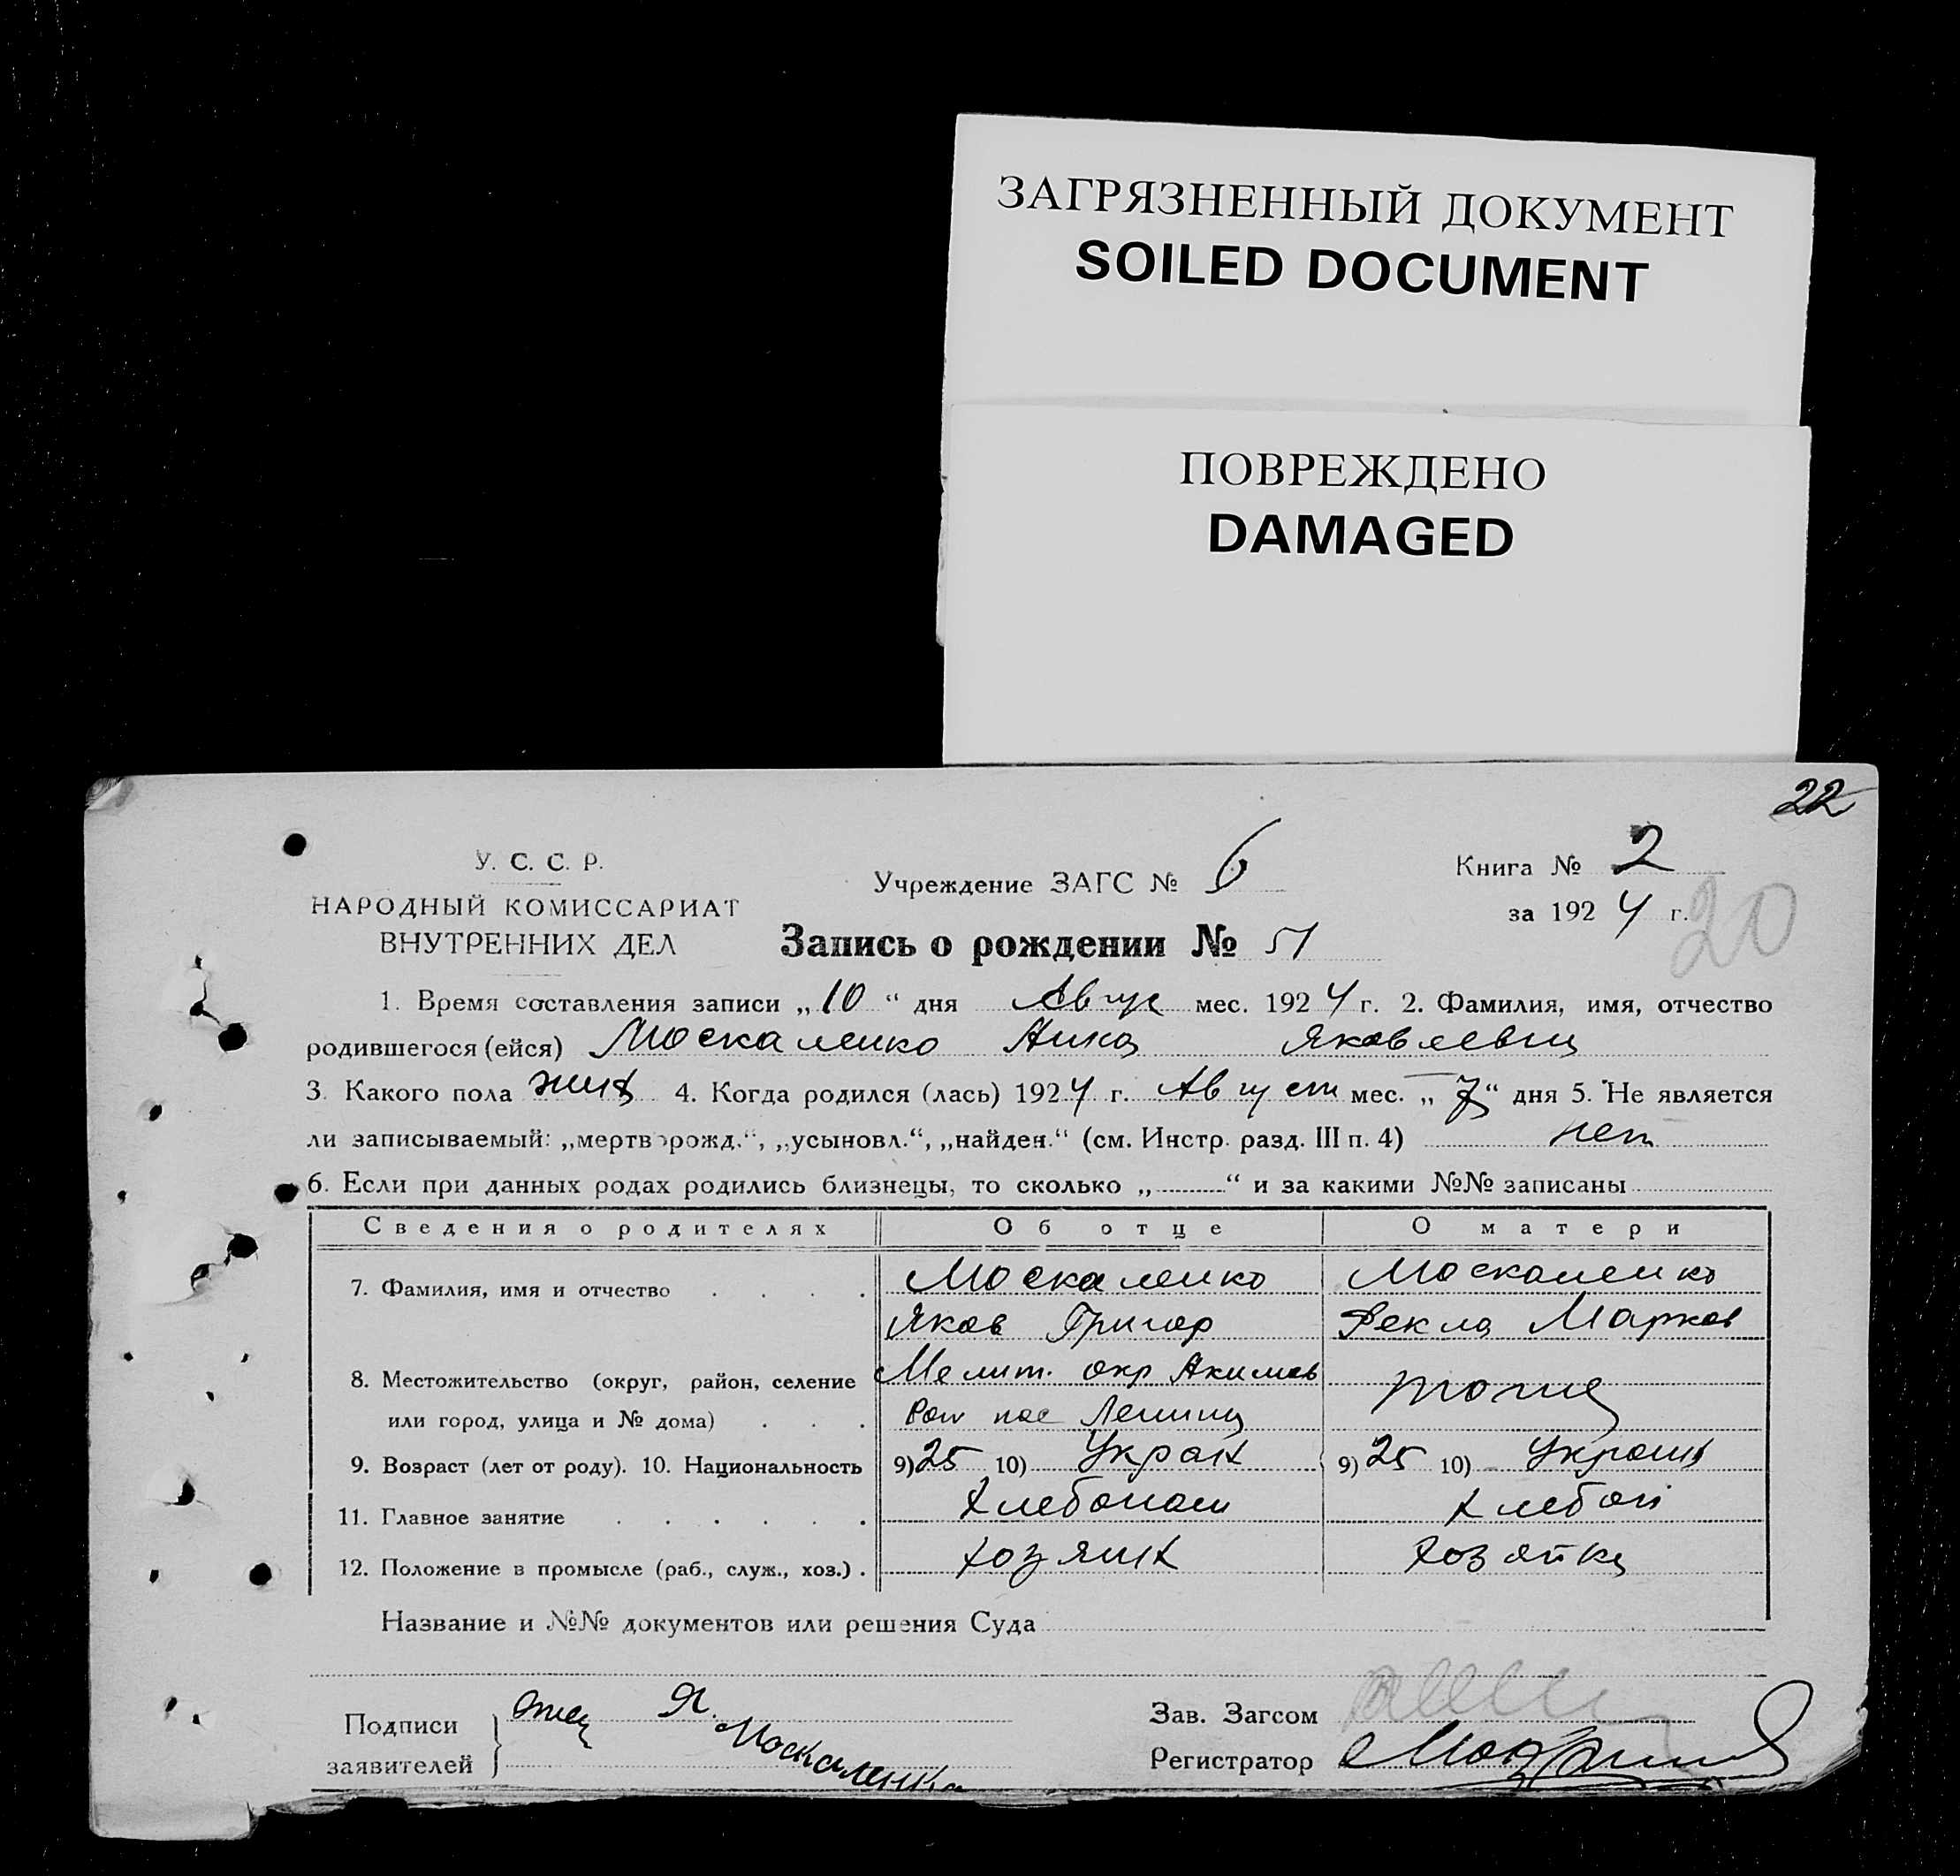 ЗАГРЯЗНЕННЫЙ ДОКУМЕНТ
SOILED DOCUMENT
ПОВРЕЖДЕНО
DAMAGED
22
У. С. С. Р.
НАРОДНЫЙ КОМИССАРИАТ
ВНУТРЕННИХ ДЕЛ
Учреждение ЗАГС № 6
Книга № 2
за 1924 г.
20
Запись о рождении № 51
1. Время составления записи „10“ дня Авгус мес. 1924 г. 2. Фамилия, имя, отчество
родившегося (ейся) Москаленко Анна Яковлевна
3. Какого пола жен 4. Когда родился (лась) 1924 г. Август мес. „7“ дня 5. Не является
ли записываемый: „мертворожд.“, „усыновл.“, „найден.“ (см. Инстр. разд. III п. 4) нет
6. Если при данных родах родились близнецы, то сколько „ “ и за какими №№ записаны
Сведения о родителях Об отце О матери
7. Фамилия, имя и отчество Москаленко Москаленко
Яков Григор Фекла Марков
8. Местожительство (округ, район, селение Мелит. окр Акимов
или город, улица и № дома) Рай пос Ленина тоже
9. Возраст (лет от роду). 10. Национальность 9) 25 10) Украин 9) 25 10) Украин
11. Главное занятие Хлебопаш Хлебоп
12. Положение в промысле (раб., служ., хоз.) хозяин хозяйка
Название и №№ документов или решения Суда
Подписи заявителей отец Я. Москаленко
Зав. Загсом
Регистратор